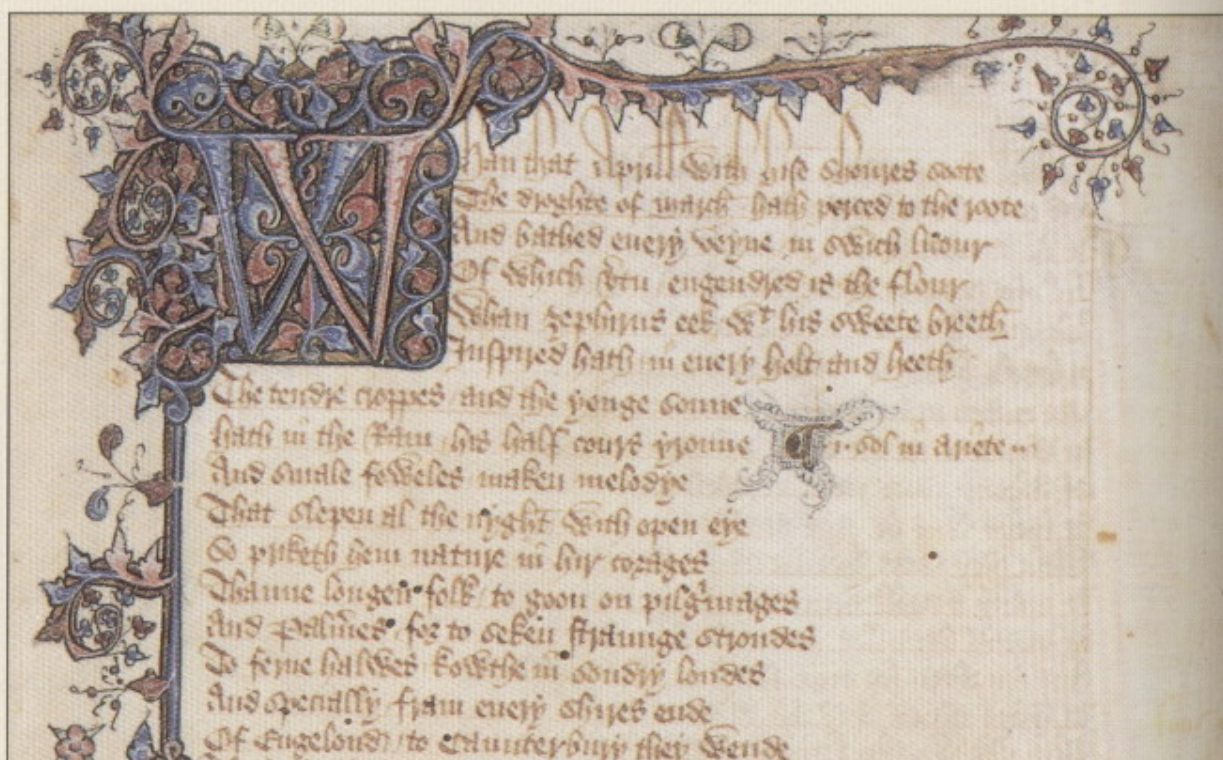 Whan that Aprill with hise shoures soote
The droghte of march hath perced to the roote
And bathed euery veyne in swich licour
Of which vtu engendred is the flour
Whan zephirus eek wᵗ his sweete breeth
Inspired hath in euery holt and heeth
The tendre croppes / and the yonge sonne
hath in the Ram / his half cours yronne i· sol in ariete
And smale foweles / maken melodye
That slepen al the nyght with open eye
So priketh hem nature in hir corages
Thanne longen folk / to goon on pilgͥmages
And Palm̄es / for to seken straunge strondes
To ferne halwes / kowthe in sondry londes
And specially / fram euery shires ende
Of Engelond / to Caunterbury they wende